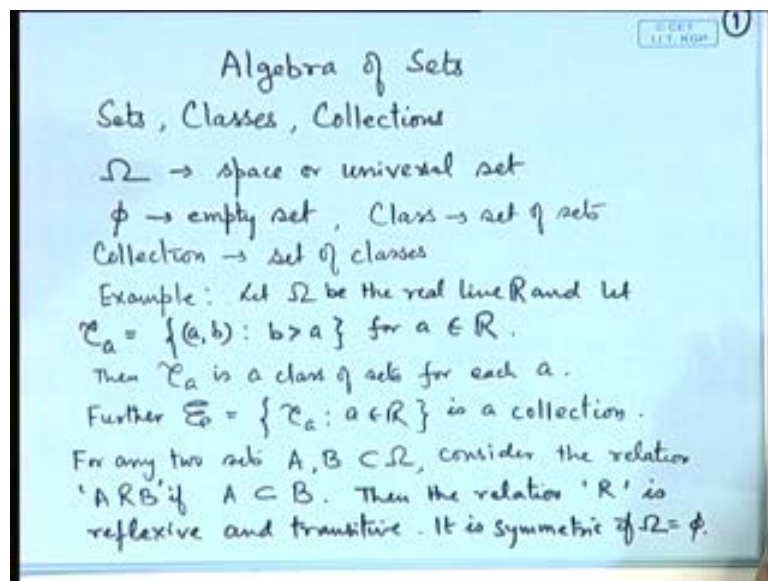 © CET
I.I.T. KGP
1
Algebra of Sets
Sets, Classes, Collections
Ω → space or universal set
φ → empty set, Class → set of sets
Collection → set of classes
Example: Let Ω be the real line R and let
𝒞a = {(a,b) : b > a} for a ∈ R.
Then 𝒞a is a class of sets for each a.
Further = {𝒞a : a ∈ R} is a collection.
For any two sets A, B ⊂ Ω, consider the relation
'ARB' if A ⊂ B. Then the relation 'R' is
reflexive and transitive. It is symmetric if Ω = φ.